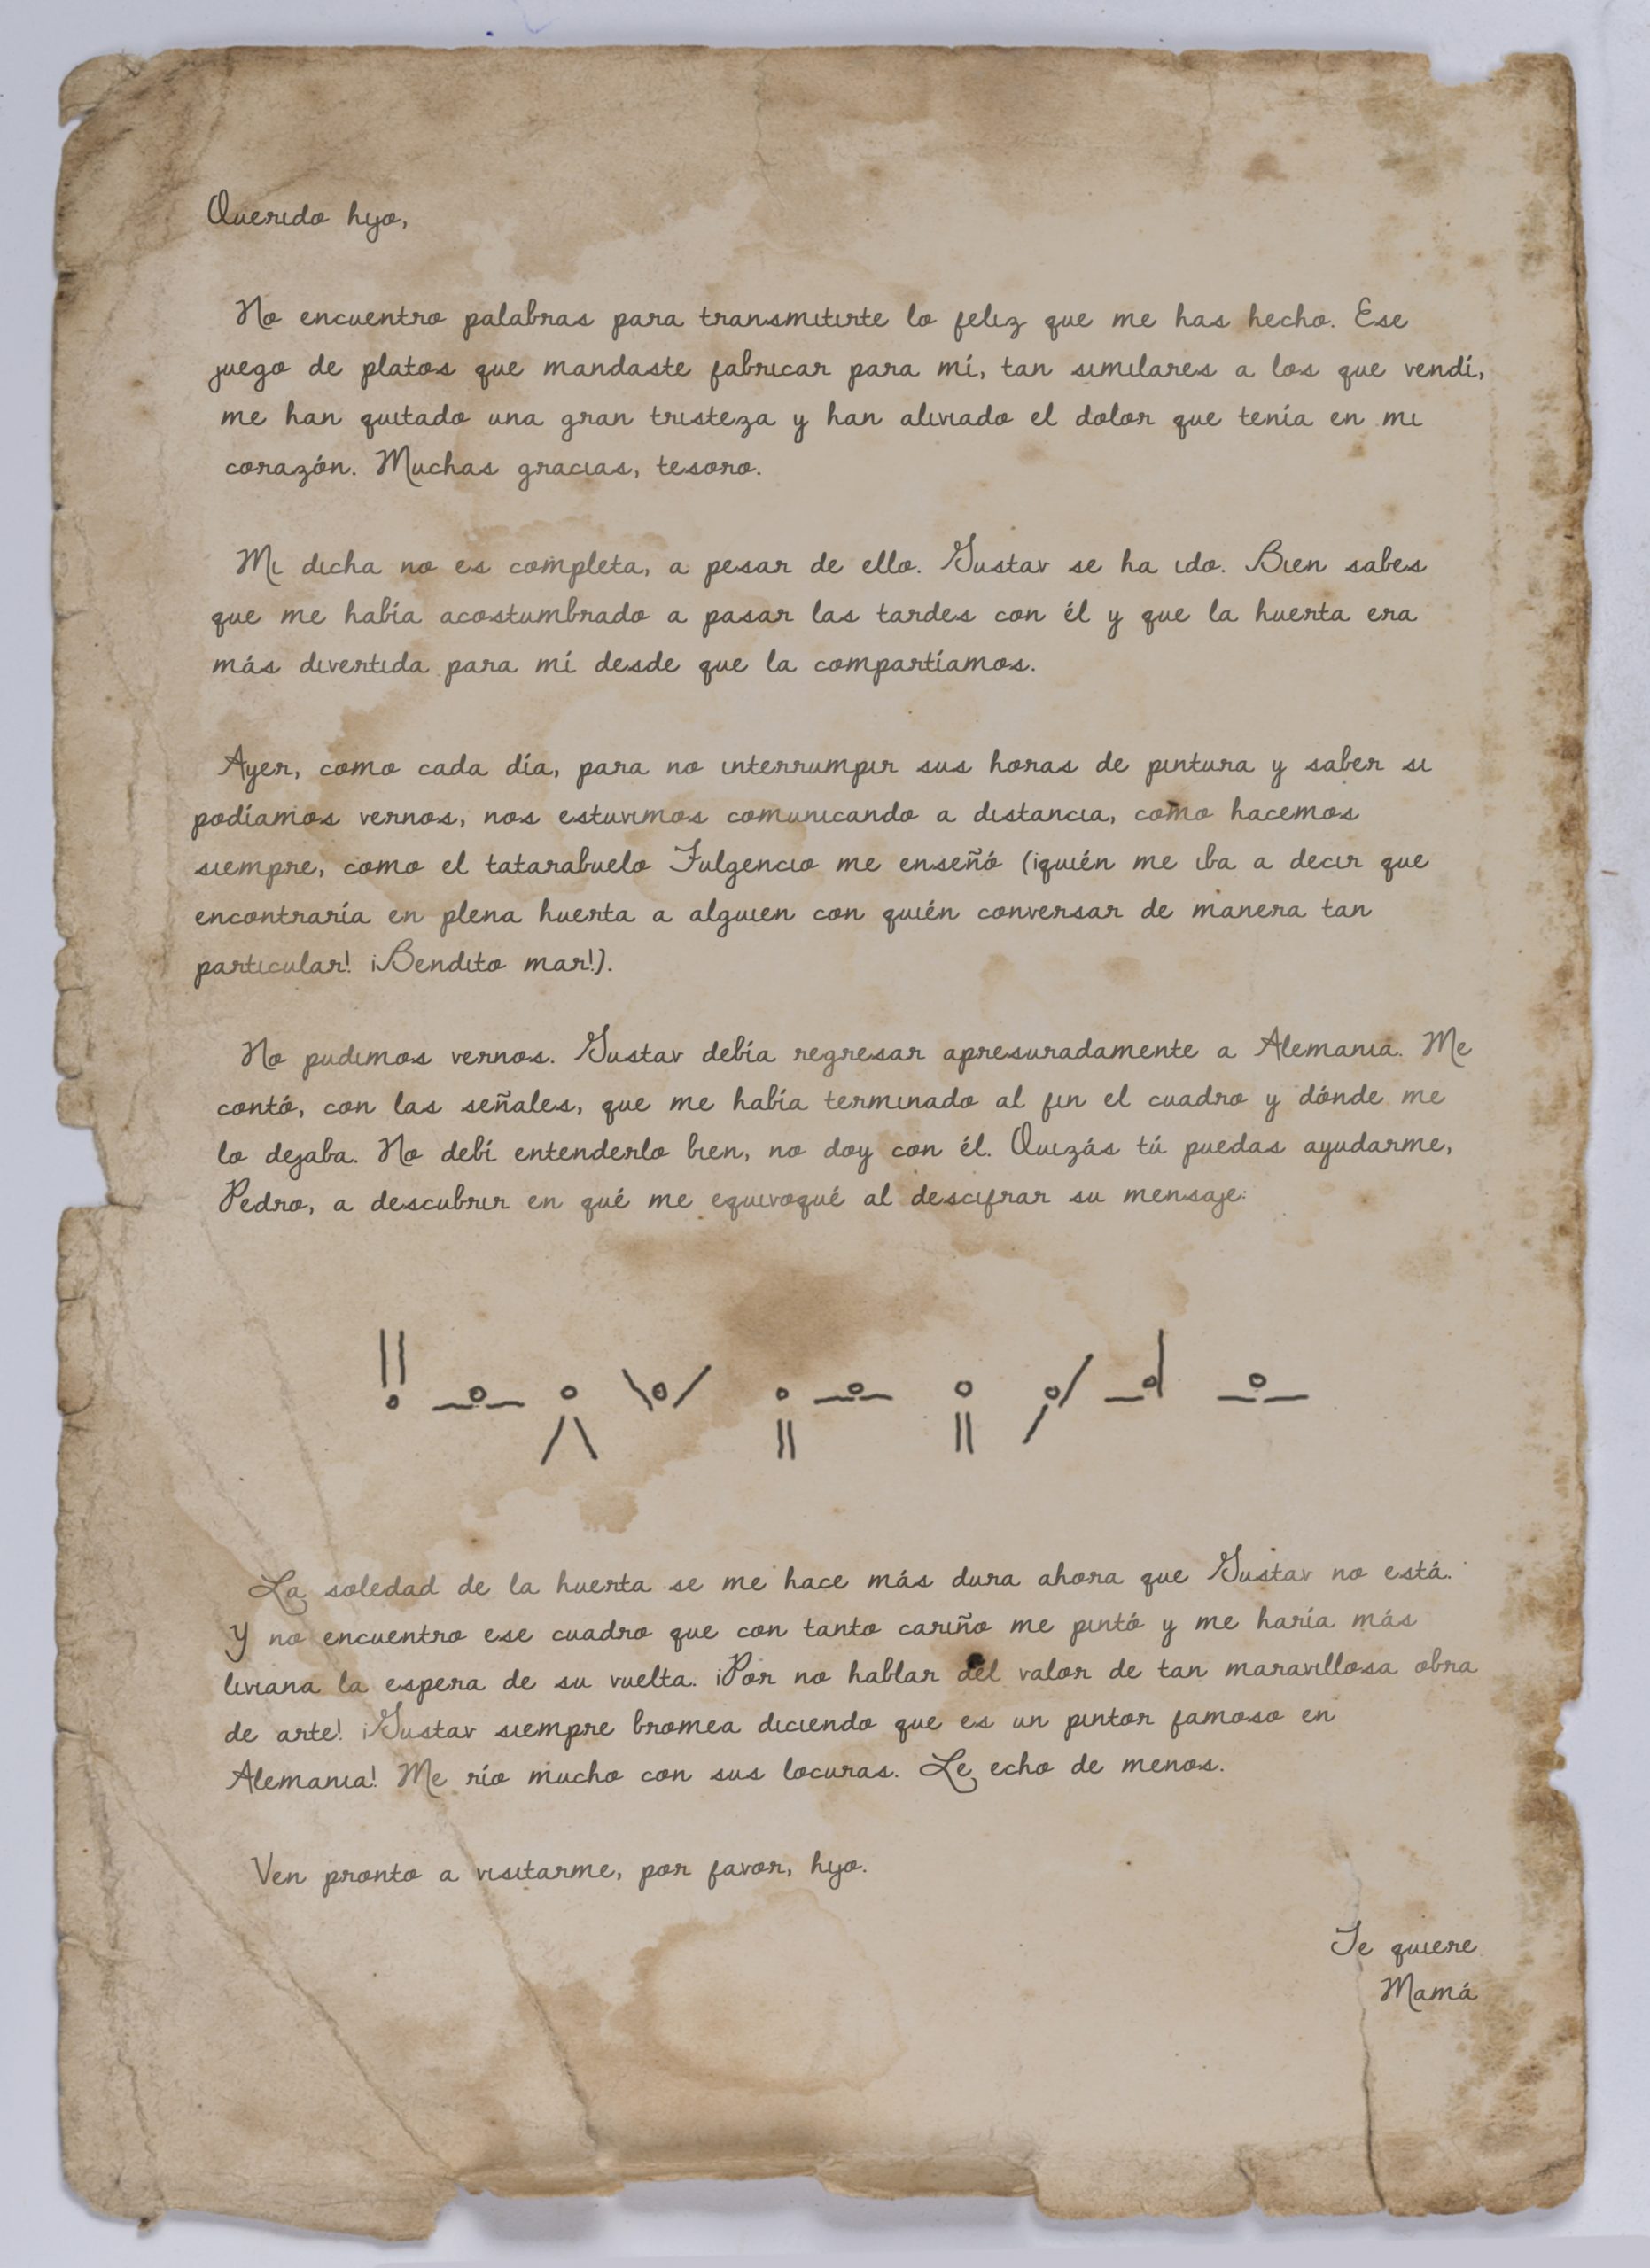 Querido hijo,
No encuentro palabras para transmitirte lo feliz que me has hecho. Ese
juego de platos que mandaste fabricar para mí, tan similares a los que vendí,
me han quitado una gran tristeza y han aliviado el dolor que tenía en mi
corazón. Muchas gracias, tesoro.
Mi dicha no es completa, a pesar de ello. Gustav se ha ido. Bien sabes
que me había acostumbrado a pasar las tardes con él y que la huerta era
más divertida para mí desde que la compartíamos.
Ayer, como cada día, para no interrumpir sus horas de pintura y saber si
podíamos vernos, nos estuvimos comunicando a distancia, como hacemos
siempre, como el tatarabuelo Fulgencio me enseñó (¡quién me iba a decir que
encontraría en plena huerta a alguien con quién conversar de manera tan
particular! ¡Bendito mar!).
No pudimos vernos. Gustav debía regresar apresuradamente a Alemania. Me
contó, con las señales, que me había terminado al fin el cuadro y dónde me
lo dejaba. No debí entenderlo bien, no doy con él. Quizás tú puedas ayudarme,
Pedro, a descubrir en qué me equivoqué al descifrar su mensaje:
La soledad de la huerta se me hace más dura ahora que Gustav no está.
Y no encuentro ese cuadro que con tanto cariño me pintó y me haría más
liviana la espera de su vuelta. ¡Por no hablar del valor de tan maravillosa obra
de arte! ¡Gustav siempre bromea diciendo que es un pintor famoso en
Alemania! Me río mucho con sus locuras. Le echo de menos.
Ven pronto a visitarme, por favor, hijo.
Te quiere
Mamá